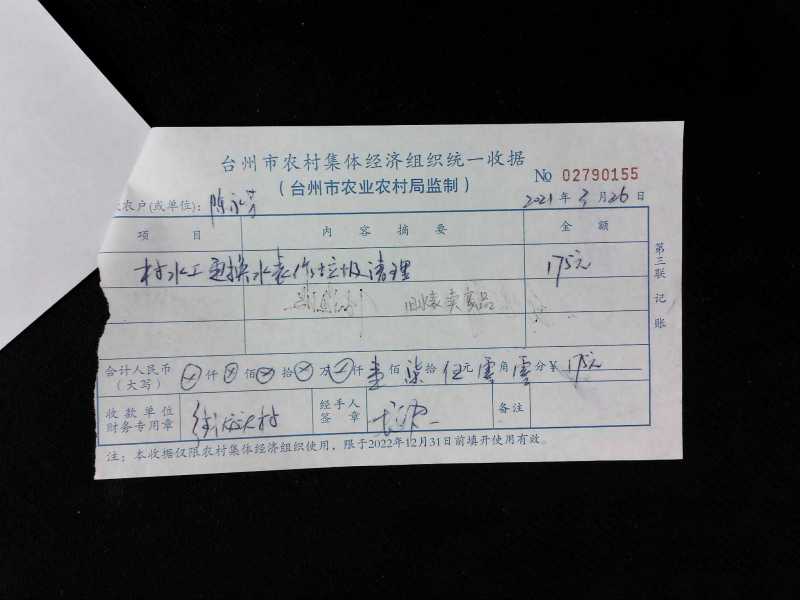 台州市农村集体经济组织统一收据
(台州市农业农村局监制)
No 02790155
农户(或单位): 陈
2021年3月26日
项 目 内 容 摘 要 金 额
村水工更换水表作垃圾清理 175元
旧水表卖废品
合计人民币(大写) 仟 佰 拾 万 仟 壹佰 柒拾 伍元 零角 零分 ¥ 175元
收款单位财务专用章 经手人签章 备注
注:本收据仅限农村集体经济组织使用,限于2022年12月31日前填开使用有效。
第三联 记账